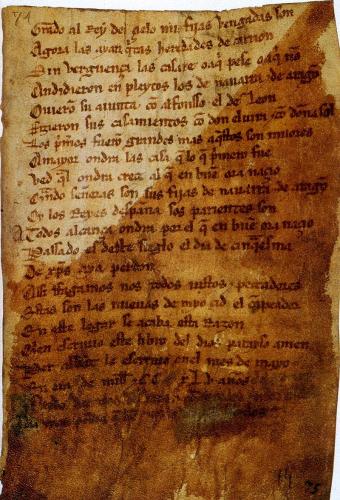 Grado al Rey del çielo mis fijas vengadas son
Agora las ayan q̃tas heredades de carrion
Sin verguença las casare o aq̃ pese o aq̃ nõ
Andidieron en pleytos los de nauarra & de aragõ
Ouierõ su aiunta cõ alfonsso el de leon
Fizieron sus casamientos cõ don eluira & cõ doña sol
Los p̃meros fuerõ grandes mas aq̃stos son miiores
A mayor ondra las casa q̃ lo q̃ p̃mero fue
Ved q̃l ondra creçe al q̃ en buẽ ora naçio
Q̃ndo señoras son sus fijas de nauarra & de aragõ
Oy los Reyes despaña sos parientes son
A todos alcança ondra por el q̃ en buẽ ora naçio
Passado es deste sieglo el dia de cinq̃esma
De xp̃s aya perdon
Assi ffagamos nos todos iustos & peccadores
Estas son las nueuas de myo çid el canpeador
En este logar se acaba esta Razon
Quien escriuio este libro del dios parayso amen
Per abbat le escriuio enel mes de mayo
En era de mill & CC xL.v. años